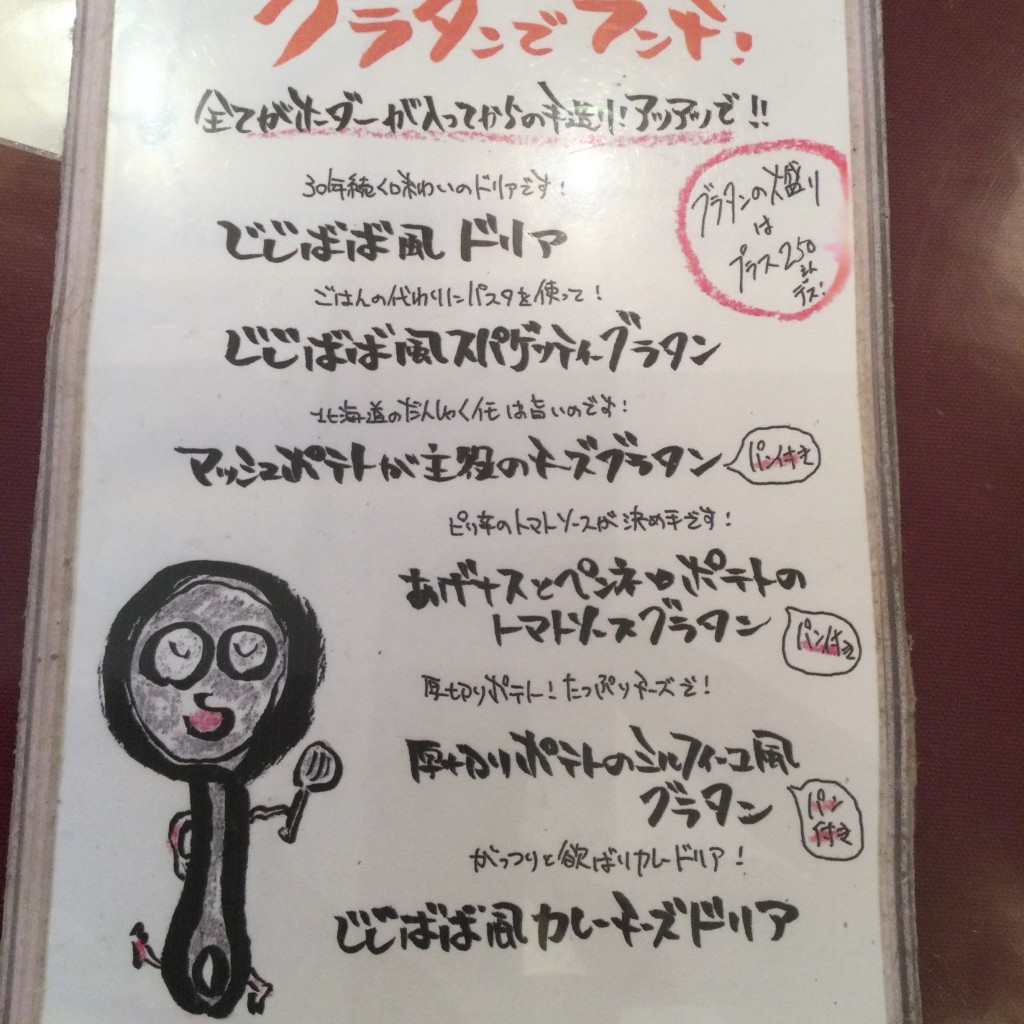 グラタンでランチ!
全てがオーダーが入ってからの手造り!アツアツで!!
30年続く味わいのドリアです!
じじばば風ドリア
グラタンの大盛り
は
プラス250
えん
デス!
ごはんの代わりにパスタを使って!
じじばば風スパゲッティーグラタン
北海道のだんしゃくイモは旨いのです!
マッシュポテトが主役のチーズグラタン
パン付き
ピリ辛のトマトソースが決め手です!
あげナスとペンネとポテトの
トマトソースグラタン
パン付き
厚切りポテト!たっぷりチーズで!
厚切りポテトのミルフィーユ風
グラタン
パン
付き
がっつりと欲ばりカレードリア!
じじばば風カレーチーズドリア